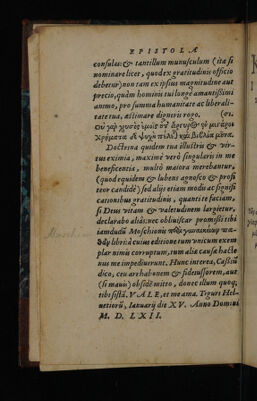 EPISTOLA
consulas: & tantillum munusculum (ita si
nominare licet, quod ex gratitudinis officio
debetur) non tam ex ipsius magnitudine aut
precio, quàm hominis tui longè amantissimi
animo, pro summa humanitate ac liberali-
tate tua, æstimare digneris rogo.
Doctrina quidem tua illustris & vir-
tus eximia, maximè verò singularis in me
beneficentia, multò maiora merebantur,
(quod equidem & lubens agnosco & profi-
teor candidè) sed alijs etiam modis ac signifi-
cationibus gratitudinis, quanti te faciam,
si Deus vitam & valetudinem largietur,
declarabo aliàs: nec oblitus sum promissi tibi
iamdudum Moschionis
libri: à cuius editione tum vnicum exem-
plar nimis corruptum, tum alia causæ hacte-
nus me impediuerunt. Hunc interea,
dico, ceu arrhabonem & fideiussorem, aut
(si mauis) obsidem mitto, donec illum quoq;
tibi sistã. VALE, et me ama. Tiguri Hel-
uetiorũ, Ianuarij die XV. Anno Domini
M. D. LXII.